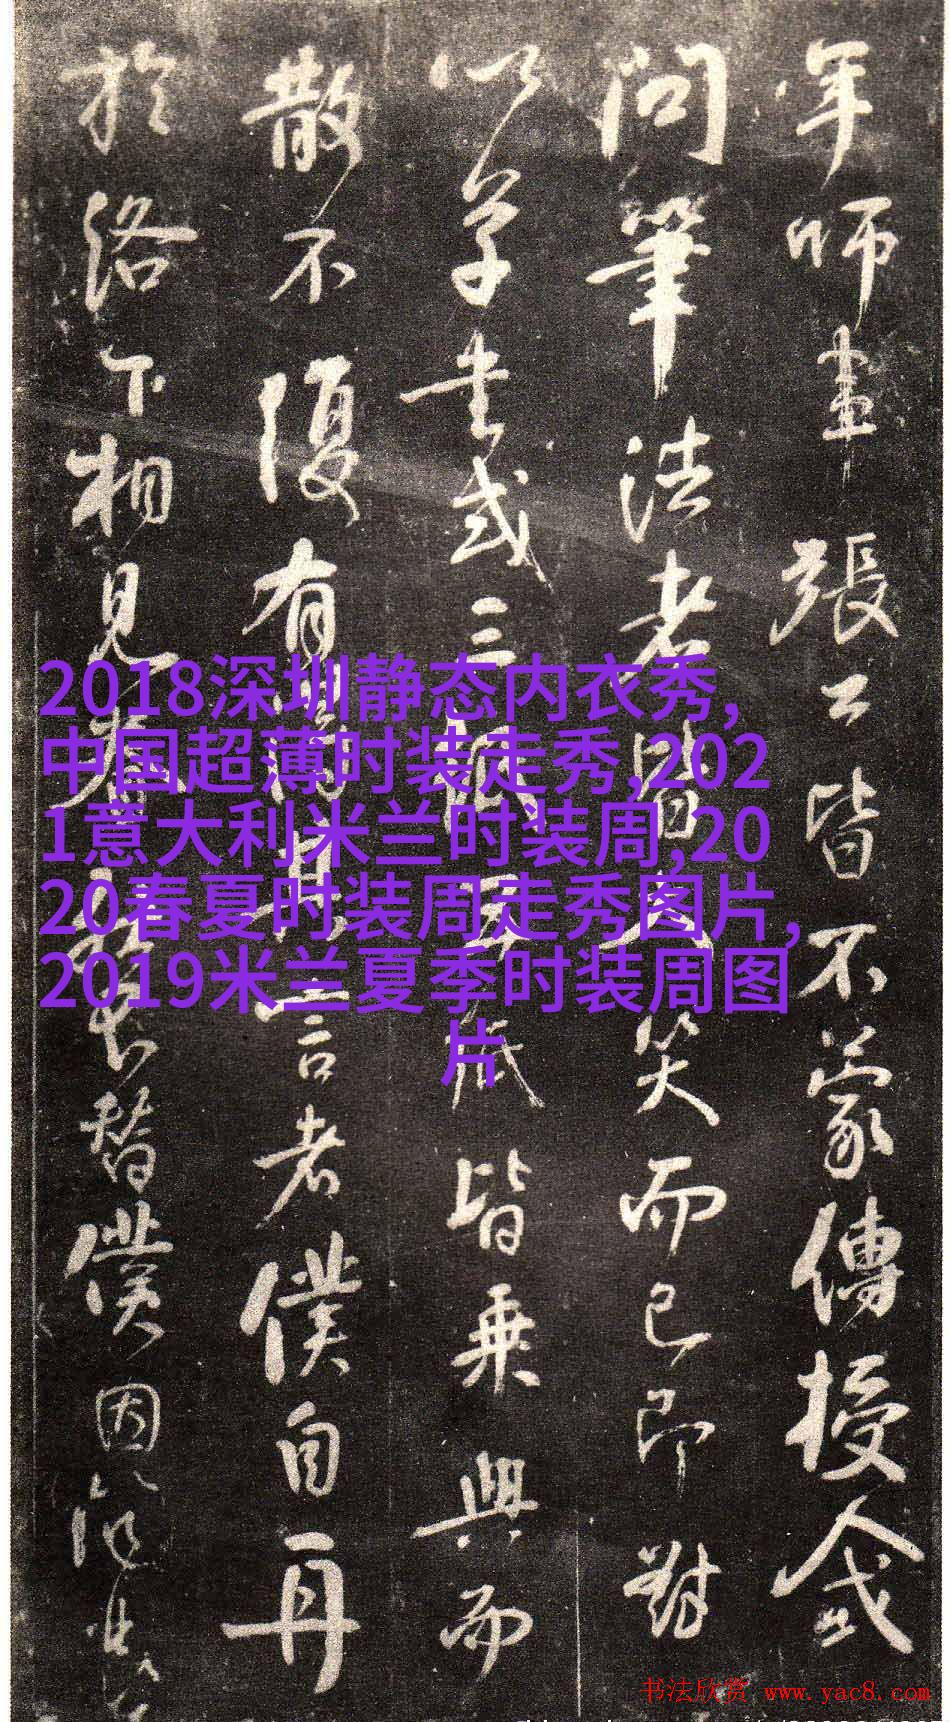 年師事張公皆不蒙傳授人或
問筆法者皆大笑而已即對
以草書或三紙五紙皆乘興而
散不復有得其言者僕自再
於洛下相見眷然不替僕因
2018深圳静态内衣秀,
中国超薄时装走秀,202
1意大利米兰时装周,20
20春夏时装周走秀图片,
2019米兰夏季时装周图
片
书法欣赏 www.yac8.com